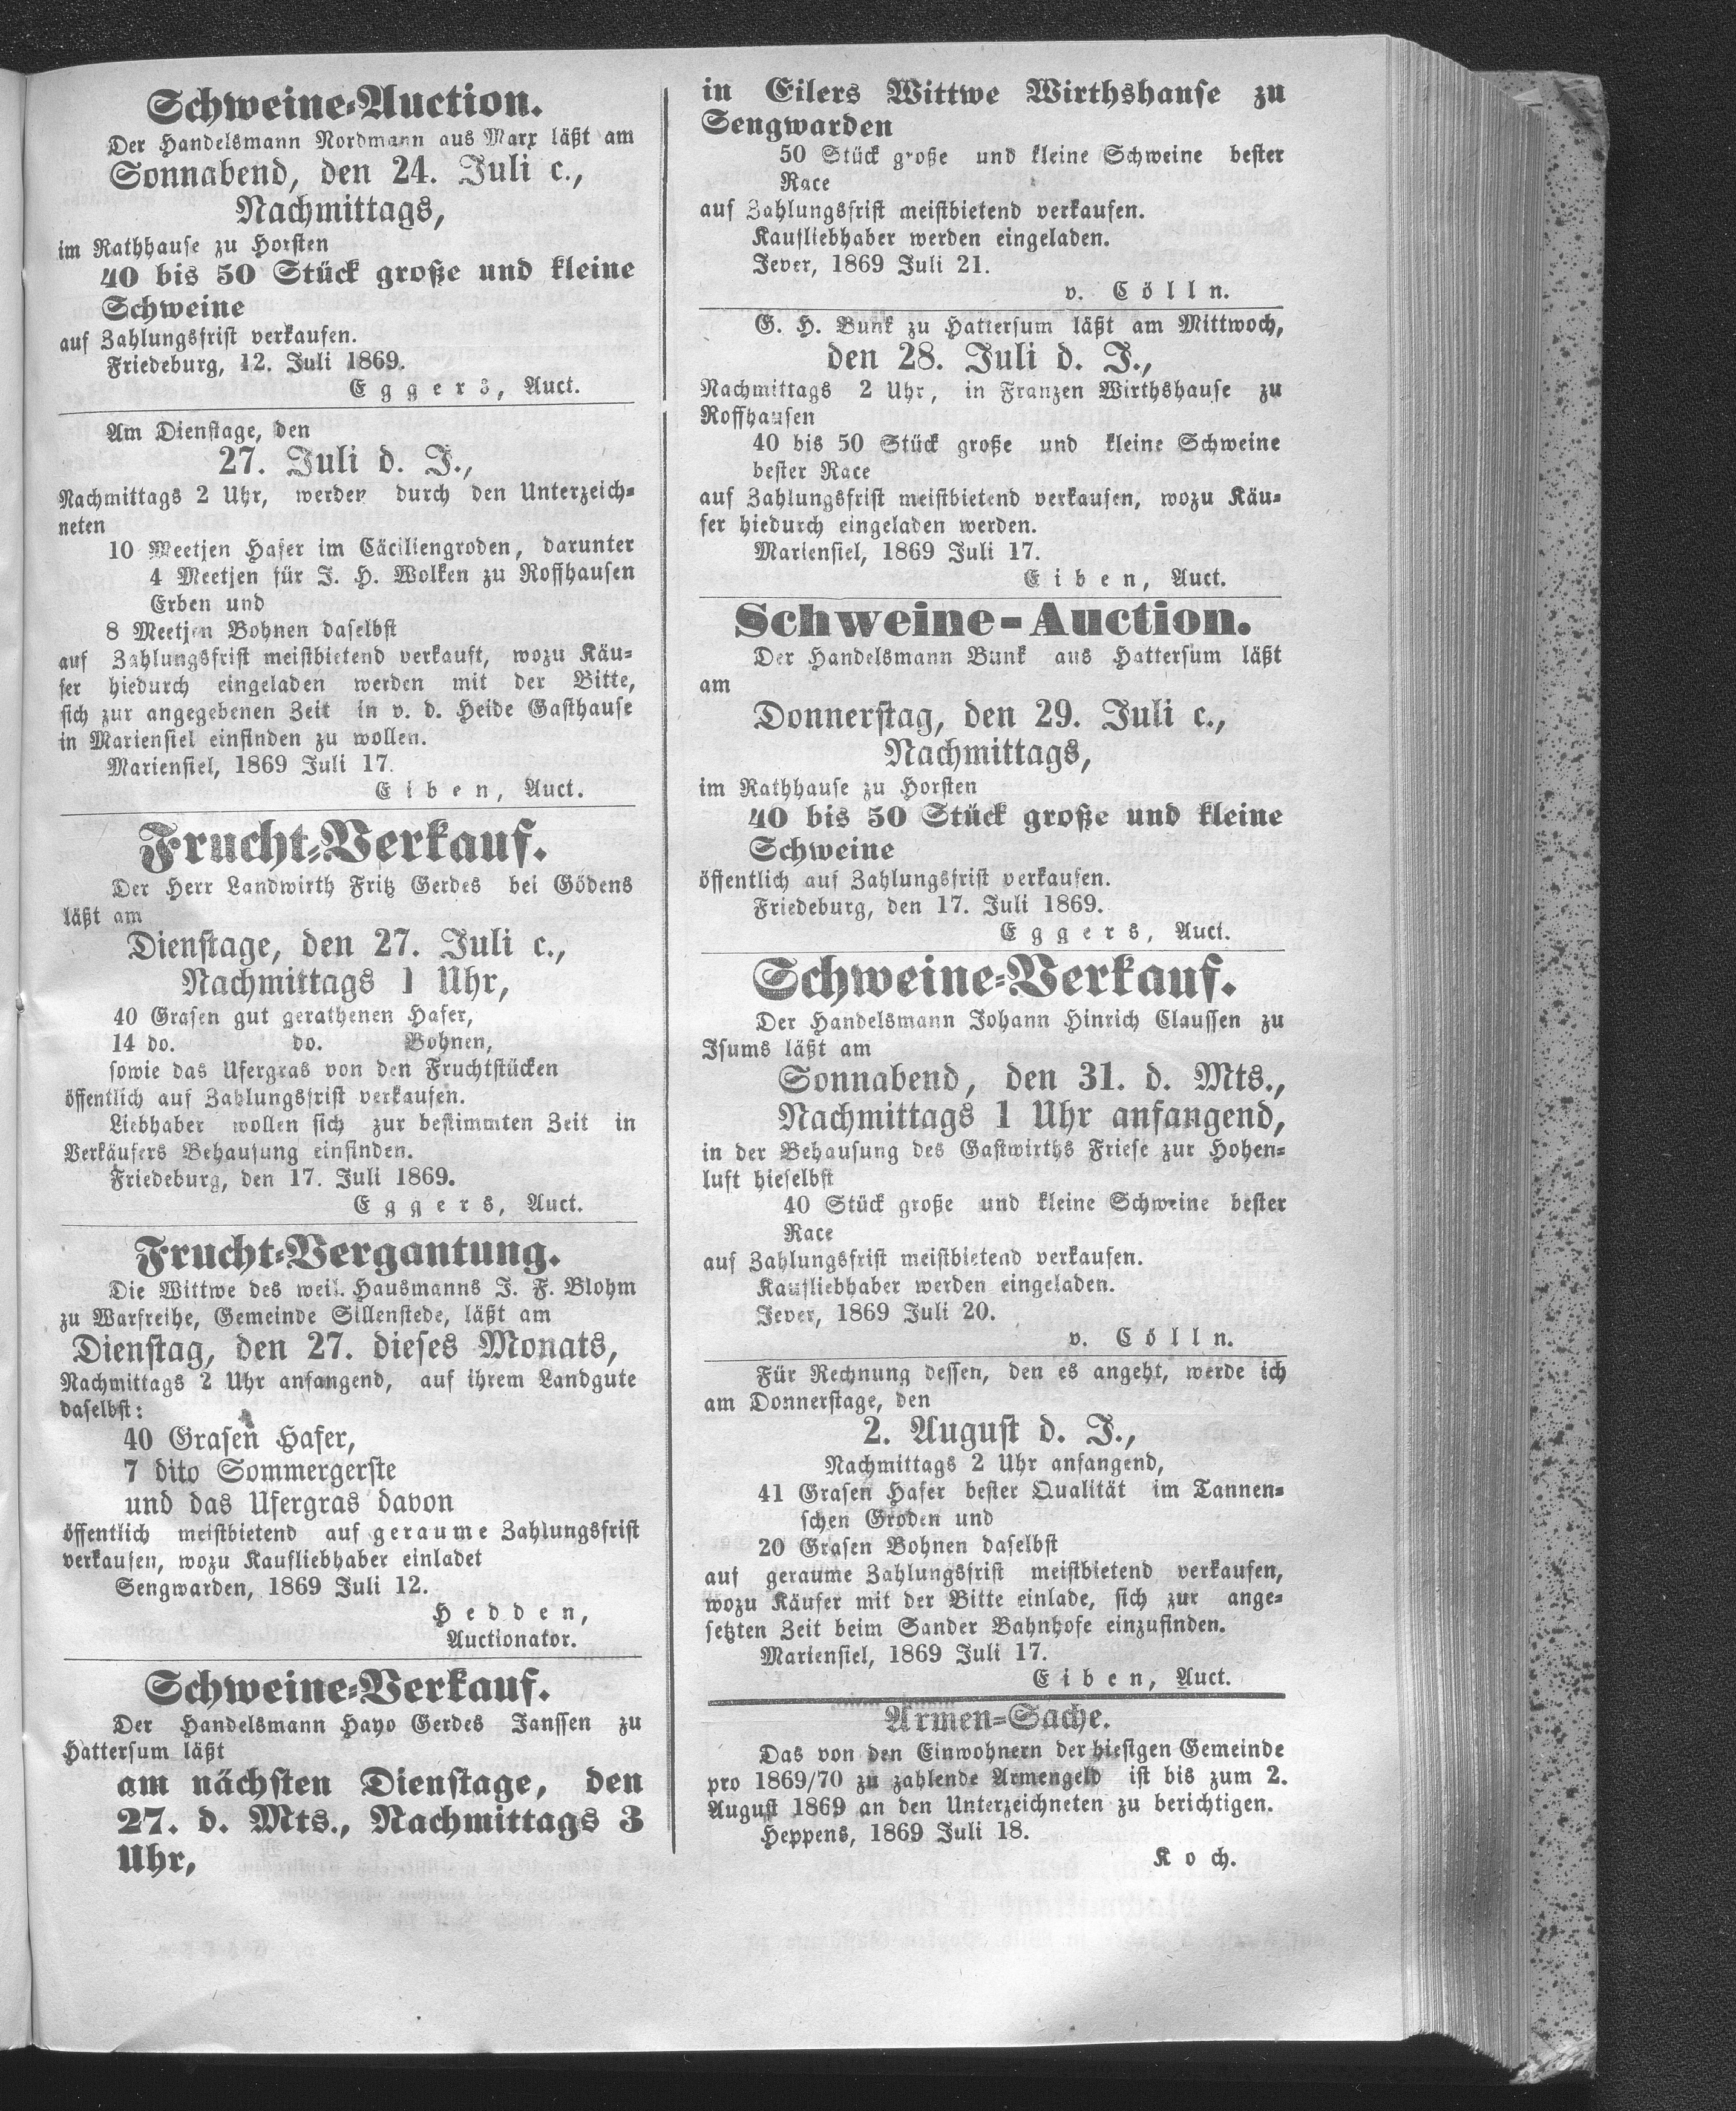 Schweine-Auction.
Der Handelsmann Nordmann aus Marx läßt am
Sonnabend, den 24. Juli c.,
Nachmittags,
im Rathhause zu Horsten
40 bis 50 Stück große und kleine
Schweine
auf Zahlungsfrist verkaufen.
Friedeburg, 12. Juli 1869.
Eggers, Auct.
Am Dienstage, den
27. Juli d. J.,
Nachmittags 2 Uhr, werden durch den Unterzeich-
neten
10 Meetjen Hafer im Cäciliengroden, darunter
4 Meetjen für J. H. Wolken zu Roffhausen
Erben und
8 Meetjen Bohnen daselbst
auf Zahlungsfrist meistbietend verkauft, wozu Käu-
fer hiedurch eingeladen werden mit der Bitte,
sich zur angegebenen Zeit in v. d. Heide Gasthause
in Mariensiel einfinden zu wollen.
Mariensiel, 1869 Juli 17.
Eiben, Auct.
Frucht-Verkauf.
Der Herr Landwirth Fritz Gerdes bei Gödens
läßt am
Dienstage, den 27. Juli c.,
Nachmittags 1 Uhr,
40 Grasen gut gerathenen Hafer,
14 do. do. Bohnen,
sowie das Ufergras von den Fruchtstücken
öffentlich auf Zahlungsfrist verkaufen.
Liebhaber wollen sich zur bestimmten Zeit in
Verkäufers Behausung einfinden.
Friedeburg, den 17. Juli 1869.
Eggers, Auct.
Frucht-Vergantung.
Die Wittwe des weil. Hausmanns J. F. Blohm
zu Warfreihe, Gemeinde Sillenstede, läßt am
Dienstag, den 27. dieses Monats,
Nachmittags 2 Uhr anfangend, auf ihrem Landgute
daselbst:
40 Grasen Hafer,
7 dito Sommergerste
und das Ufergras davon
öffentlich meistbietend auf geraume Zahlungsfrist
verkaufen, wozu Kaufliebhaber einladet
Sengwarden, 1869 Juli 12.
Hedden,
Auctionator.
Schweine-Verkauf.
Der Handelsmann Hayo Gerdes Janssen zu
Hattersum läßt
am nächsten Dienstage, den
27. d. Mts., Nachmittags 3
Uhr,
in Eilers Wittwe Wirthshause zu
Sengwarden
50 Stück große und kleine Schweine bester
Race
auf Zahlungsfrist meistbietend verkaufen.
Kaufliebhaber werden eingeladen.
Jever, 1869 Juli 21.
v. Cölln.
G. H. Bunk zu Hattersum läßt am Mittwoch,
den 28. Juli d. J.,
Nachmittags 2 Uhr, in Franzen Wirthshause zu
Roffhausen
40 bis 50 Stück große und kleine Schweine
bester Race
auf Zahlungsfrist meistbietend verkaufen, wozu Käu-
fer hiedurch eingeladen werden.
Mariensiel, 1869 Juli 17.
Eiben, Auct.
Schweine-Auction.
Der Handelsmann Bunk aus Hattersum läßt
am
Donnerstag, den 29. Juli c.,
Nachmittags,
im Rathhause zu Horsten
40 bis 50 Stück große und kleine
Schweine
öffentlich auf Zahlungsfrist verkaufen.
Friedeburg, den 17. Juli 1869.
Eggers, Auct.
Schweine-Verkauf.
Der Handelsmann Johann Hinrich Claussen zu
Isums läßt am
Sonnabend, den 31. d. Mts.,
Nachmittags 1 Uhr anfangend,
in der Behausung des Gastwirths Friese zur Hohen-
luft hieselbst
40 Stück große und kleine Schweine bester
Race
auf Zahlungsfrist meistbietend verkaufen.
Kaufliebhaber werden eingeladen.
Jever, 1869 Juli 20.
v. Cölln.
Für Rechnung dessen, den es angeht, werde ich
am Donnerstage, den
2. August d. J.,
Nachmittags 2 Uhr anfangend,
41 Grasen Hafer bester Qualität im Tannen-
schen Groden und
20 Grasen Bohnen daselbst
auf geraume Zahlungsfrist meistbietend verkaufen,
wozu Käufer mit der Bitte einlade, sich zur ange-
setzten Zeit beim Sander Bahnhofe einzufinden.
Mariensiel, 1869 Juli 17.
Eiben, Auct.
Armen-Sache.
Das von den Einwohnern der hiesigen Gemeinde
pro 1869/70 zu zahlende Armengeld ist bis zum 2.
August 1869 an den Unterzeichneten zu berichtigen.
Heppens, 1869 Juli 18.
Koch.